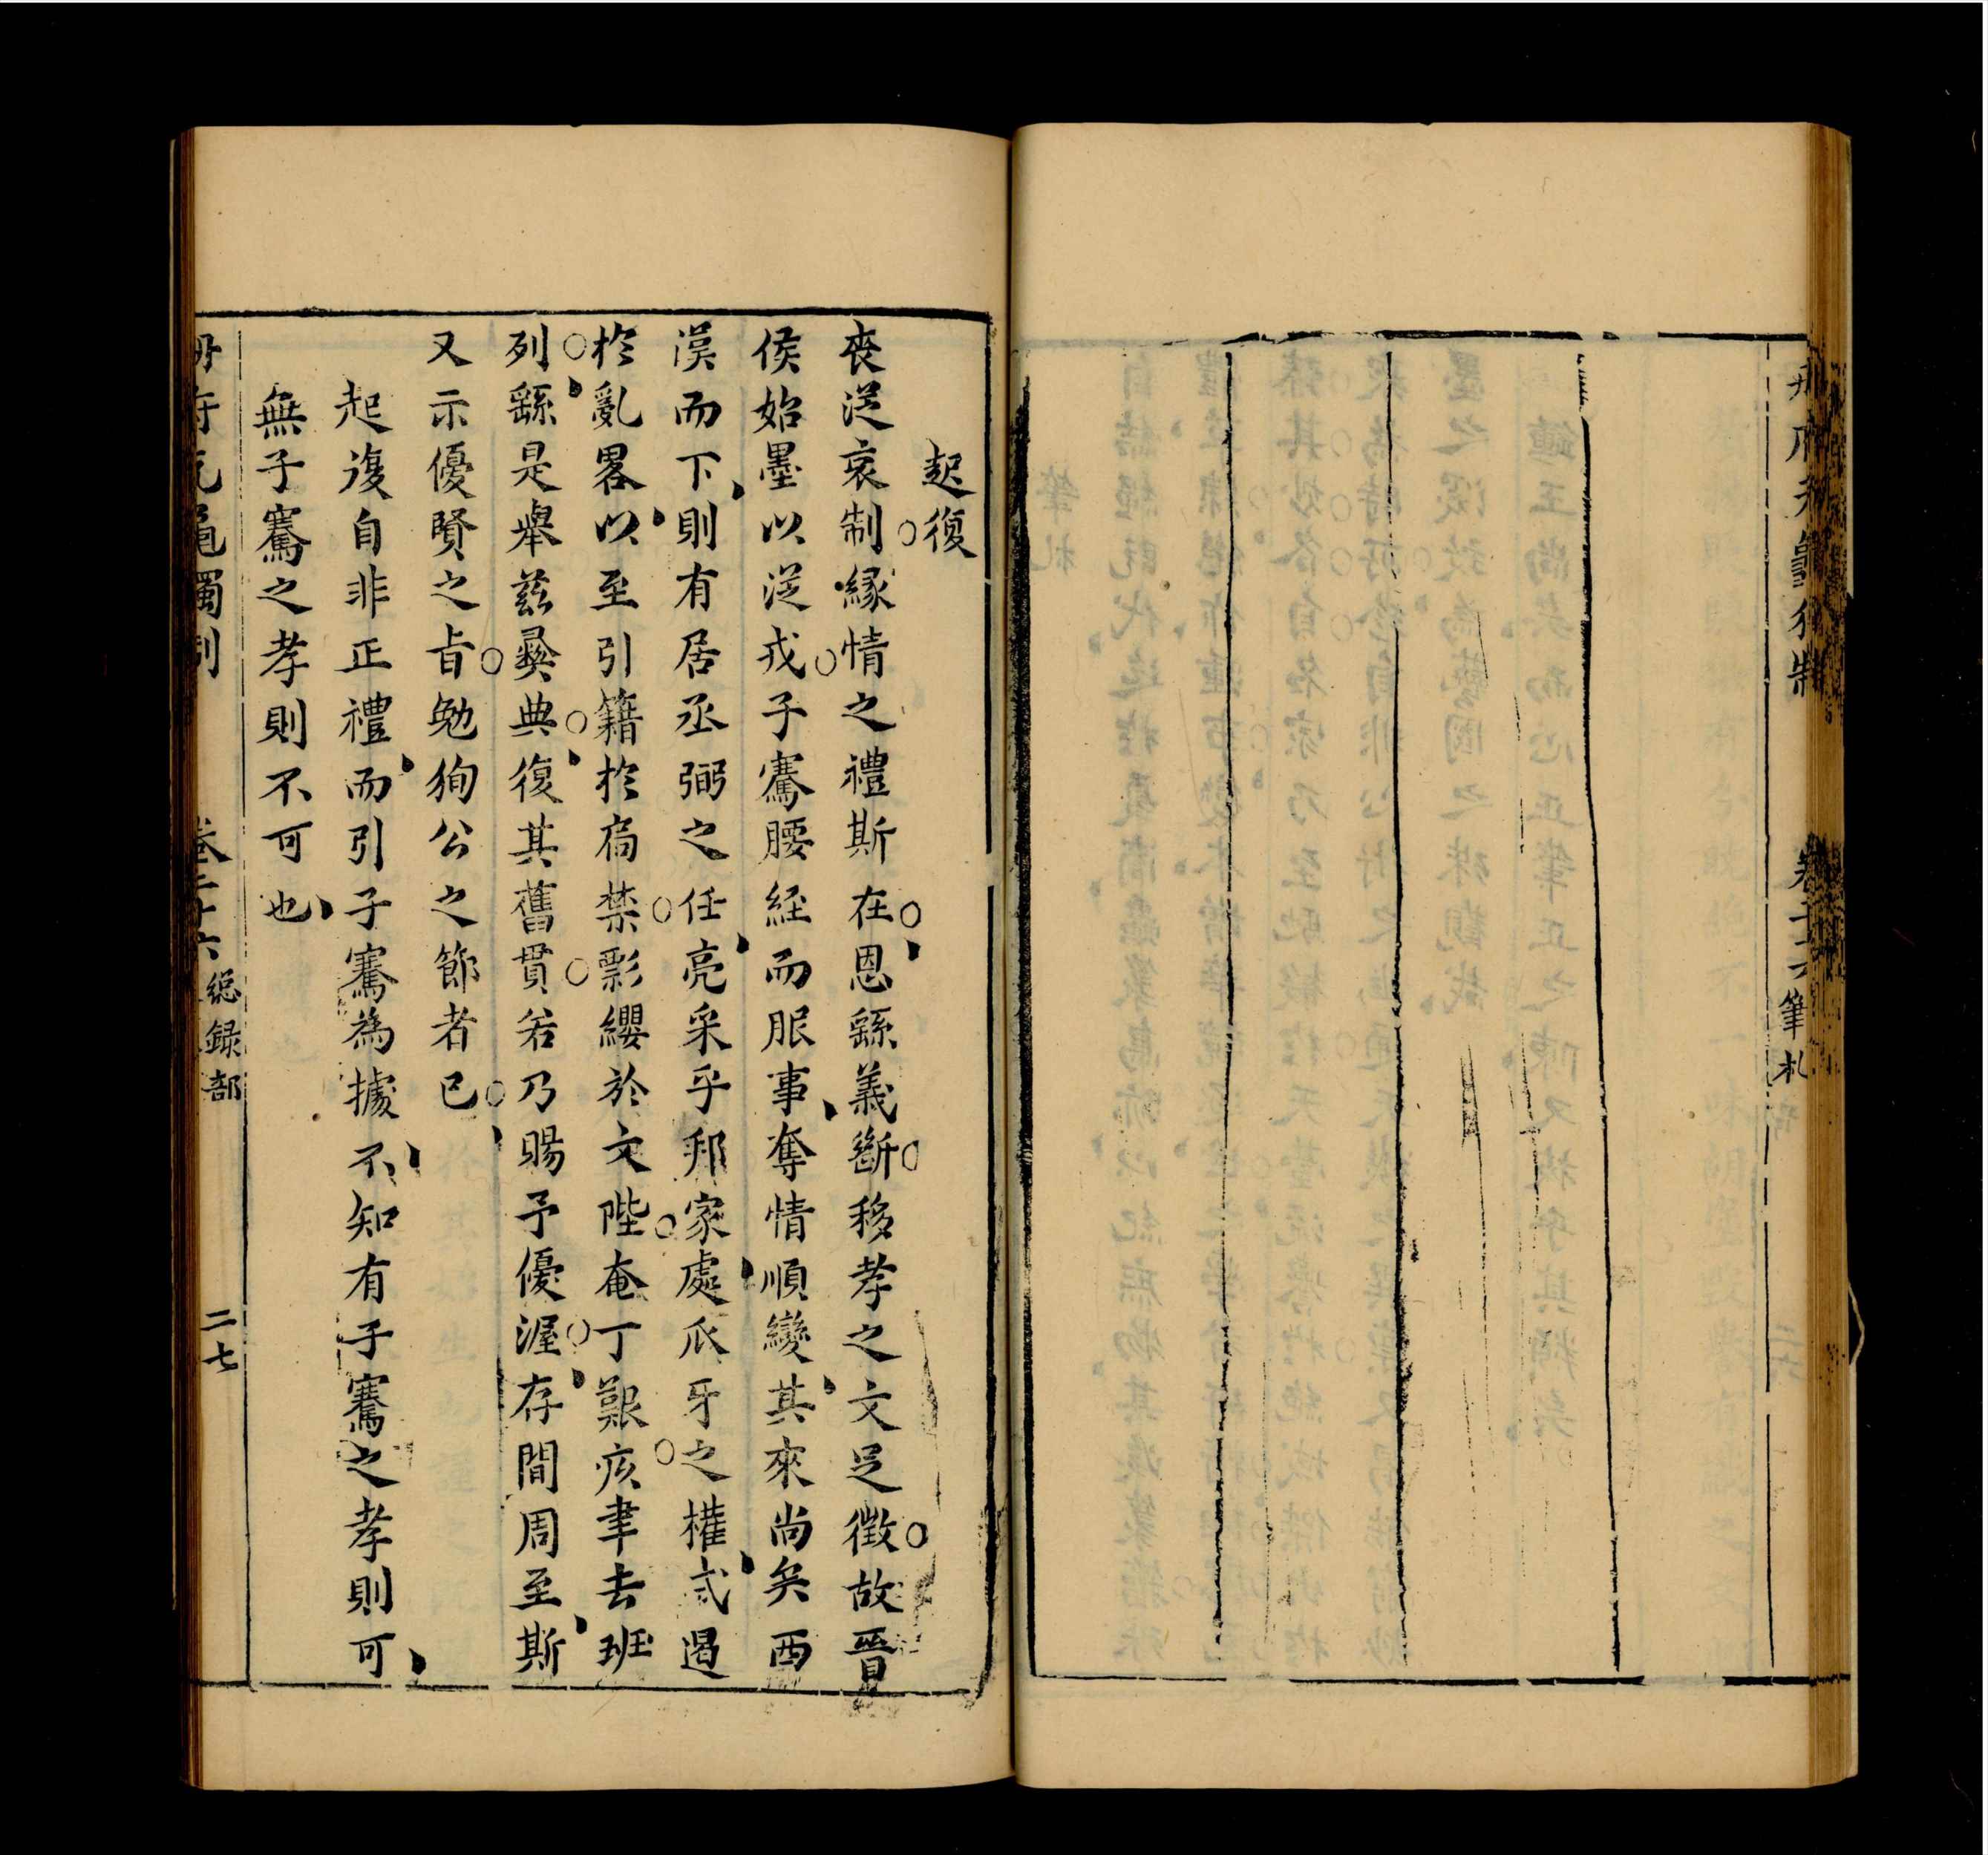 冊府元龜獨制
卷二十六
筆札
起復
喪從哀制緣情之禮斯在恩繇義斷移孝之文足徵故晉
侯始墨以從戎子騫腰絰而服事奪情順變其來尚矣西
漢而下則有居丞弼之任亮采乎邦家處爪牙之權式遏
於亂畧以至引籍於扃禁影纓於文陛奄丁艱疚聿去班
列繇是舉茲彝典復其舊貫若乃賜予優渥存問周至斯
又示優賢之旨勉徇公之節者已
起復自非正禮而引子騫為據不知有子騫之孝則可
無子騫之孝則不可也
冊府元龜獨制
卷二十六
總録部
二七